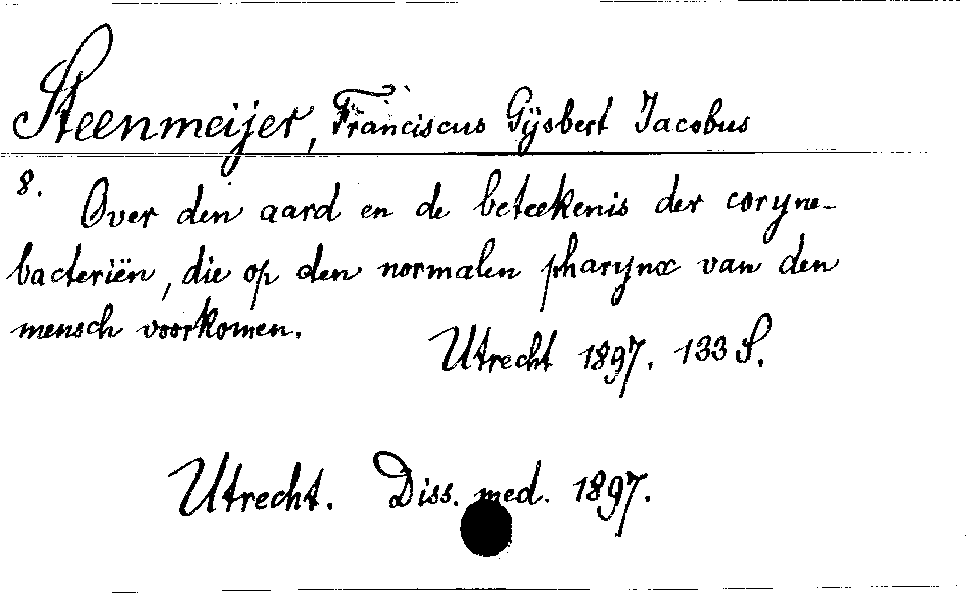 Steenmeijer, Franciscus Gijsbert Jacobus
8. Over den aard en de beteekenis der coryne-
bacteriën, die op den normalen pharynx van den
mensch voorkomen.
Utrecht 1897. 133 S.
Utrecht. Diss. med. 1897.